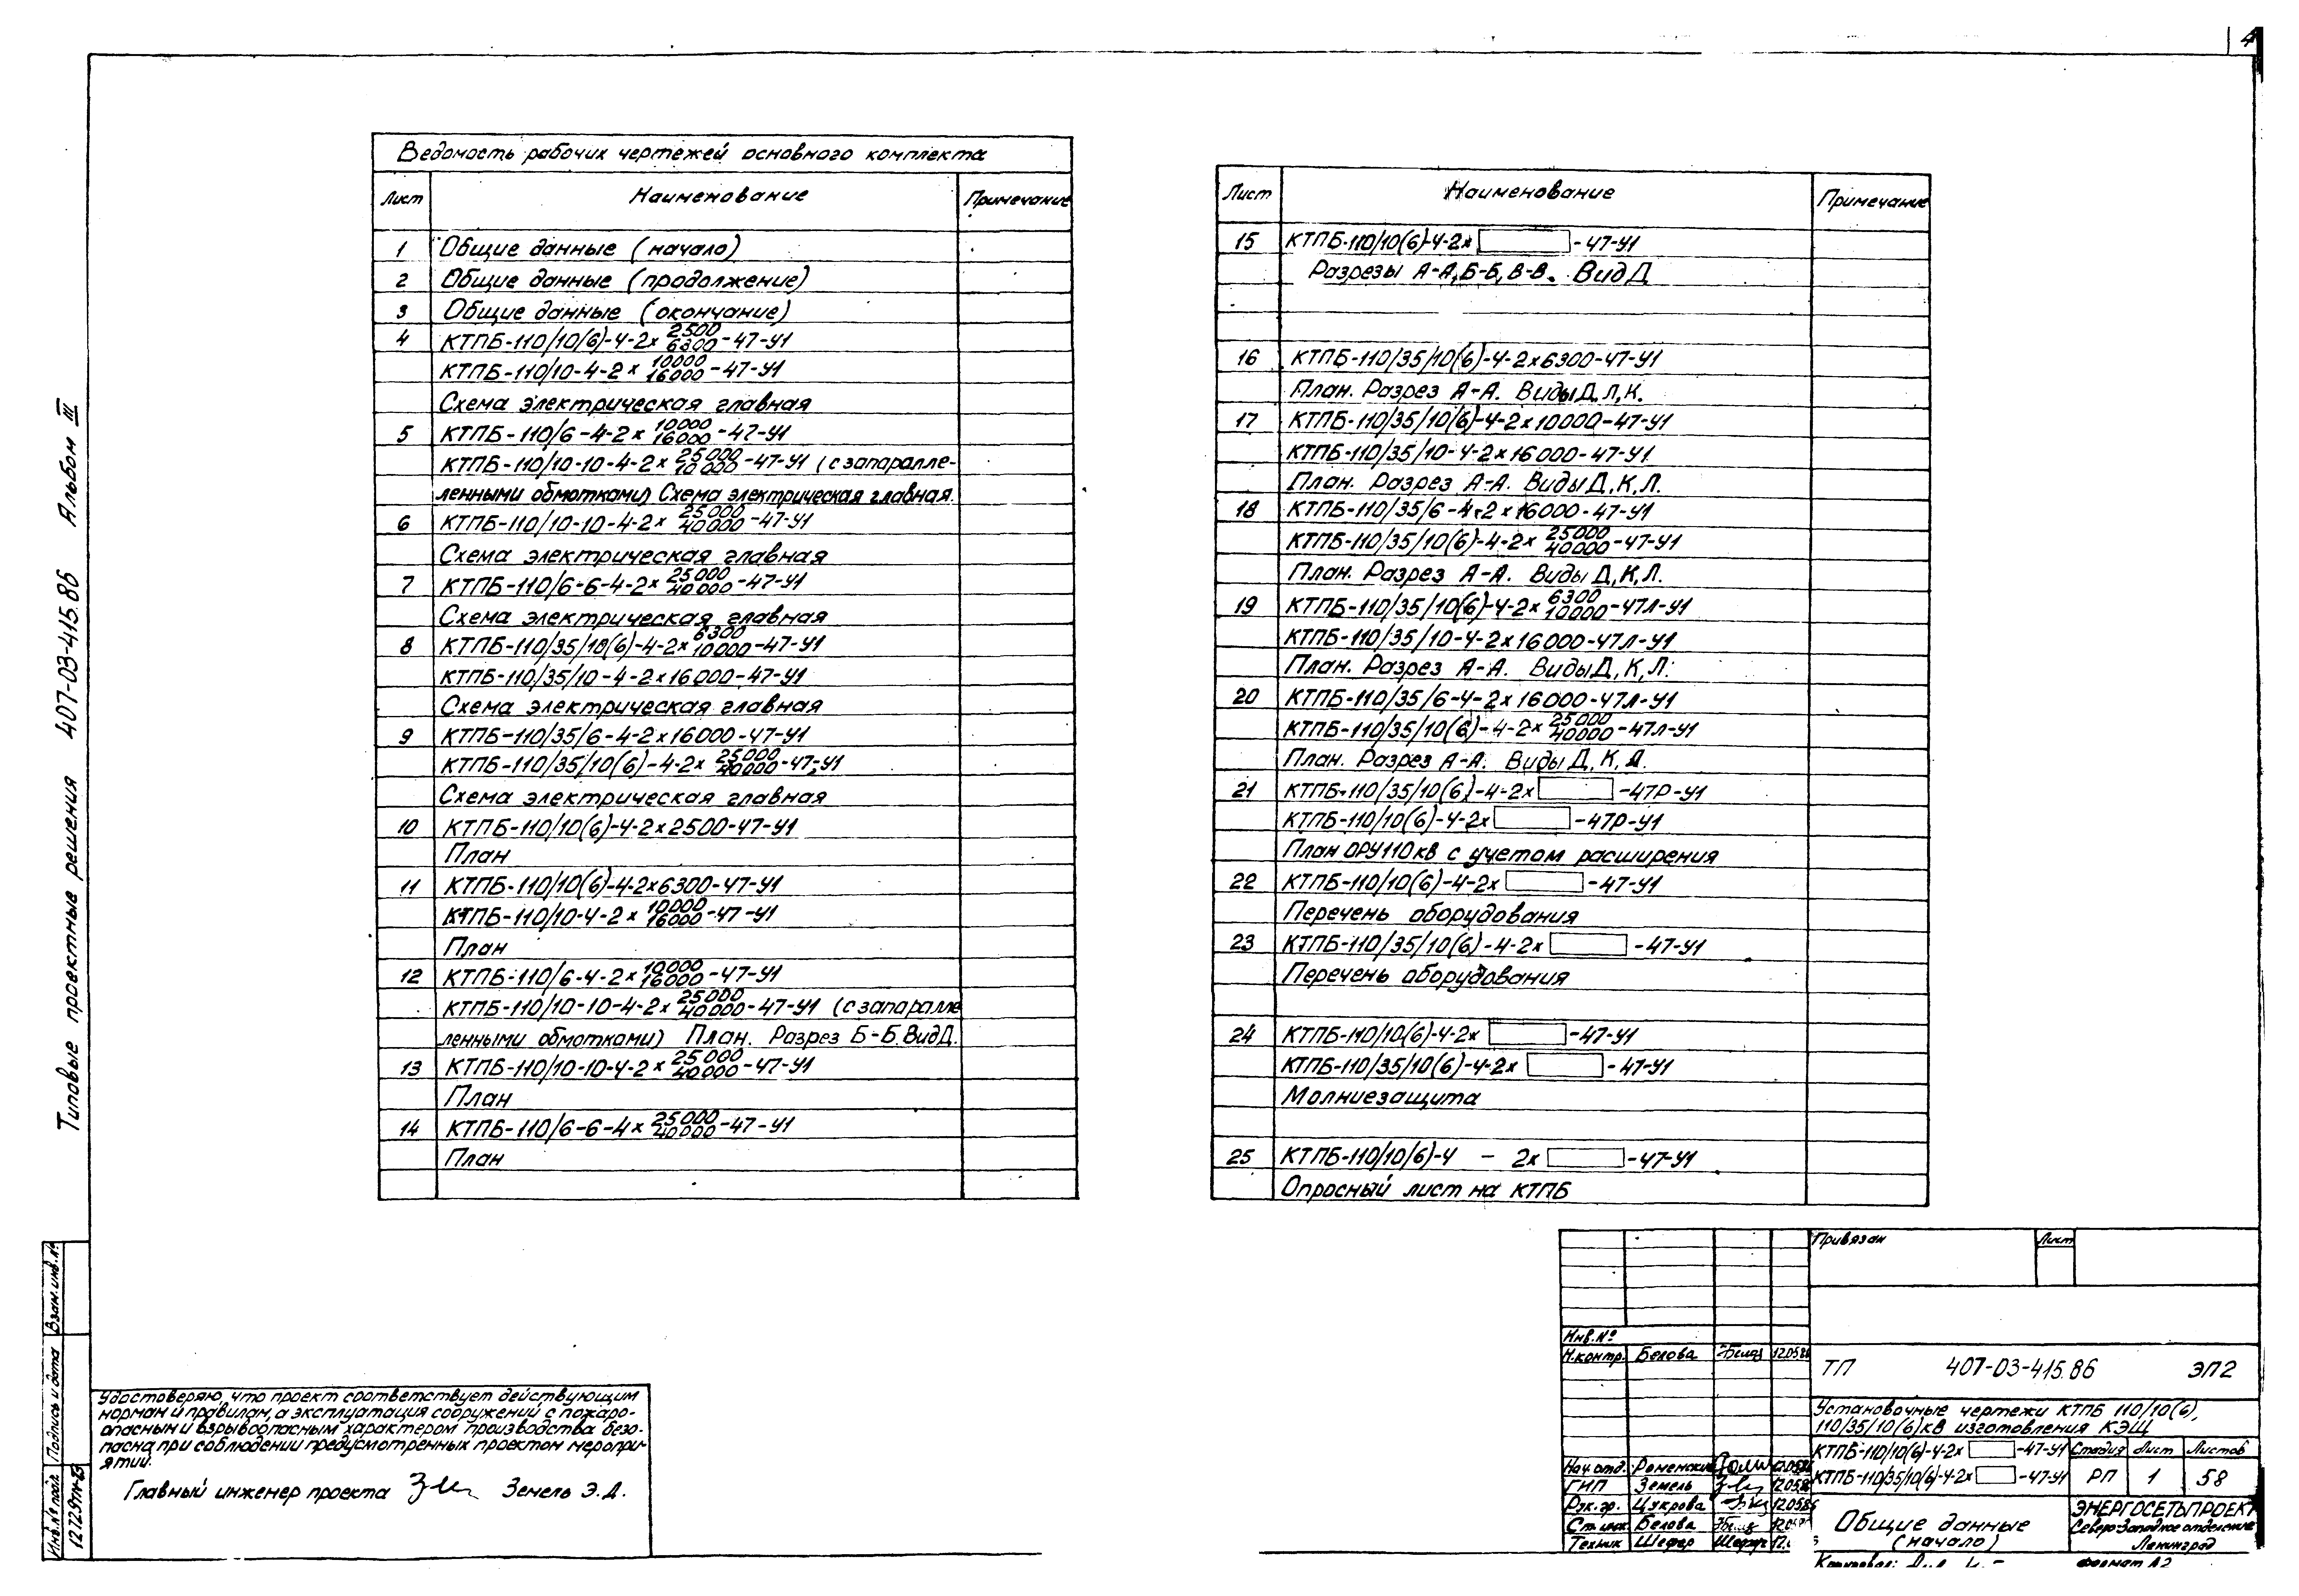 4
Ведомость рабочих чертежей основного комплекта
Лист Наименование Примечание
1 Общие данные (начало)
2 Общие данные (продолжение)
3 Общие данные (окончание)
4 КТПБ-110/10(6)-4-2x 2500/6300 -47-У1
КТПБ-110/10-4-2x 10000/16000 -47-У1
Схема электрическая главная
5 КТПБ-110/6-4-2x 10000/16000 -47-У1
КТПБ-110/10-10-4-2x 25000/10000 -47-У1 (с запаралле-
ленными обмотками) Схема электрическая главная.
6 КТПБ-110/10-10-4-2x 25000/40000 -47-У1
Схема электрическая главная
7 КТПБ-110/6-6-4-2x 25000/40000 -47-У1
Схема электрическая главная
8 КТПБ-110/35/10(6)-4-2x 6300/10000 -47-У1
КТПБ-110/35/10-4-2x16000-47-У1
Схема электрическая главная
9 КТПБ-110/35/6-4-2x16000-47-У1
КТПБ-110/35/10(6)-4-2x 25000/40000 -47-У1
Схема электрическая главная
10 КТПБ-110/10(6)-4-2x2500-47-У1
План
11 КТПБ-110/10(6)-4-2x6300-47-У1
КТПБ-110/10-4-2x 10000/16000 -47-У1
План
12 КТПБ-110/6-4-2x 10000/16000 -47-У1
КТПБ-110/10-10-4-2x 25000/40000 -47-У1 (с запаралле
ленными обмотками) План. Разрез Б-Б. Вид Д.
13 КТПБ-110/10-10-4-2x 25000/40000 -47-У1
План
14 КТПБ-110/6-6-4x 25000/40000 -47-У1
План
Лист Наименование Примечание
15 КТПБ-110/10(6)-4-2x -47-У1
Разрезы А-А, Б-Б, В-В. Вид Д
16 КТПБ-110/35/10(6)-4-2x6300-47-У1
План. Разрез А-А. Виды Д, Л, К.
17 КТПБ-110/35/10(6)-4-2x10000-47-У1
КТПБ-110/35/10-4-2x16000-47-У1
План. Разрез А-А. Виды Д, К, Л.
18 КТПБ-110/35/6-4-2x16000-47-У1
КТПБ-110/35/10(6)-4-2x 25000/40000 -47-У1
План. Разрез А-А. Виды Д, К, Л.
19 КТПБ-110/35/10(6)-4-2x 6300/10000 -47Л-У1
КТПБ-110/35/10-4-2x16000-47Л-У1
План. Разрез А-А. Виды Д, К, Л.
20 КТПБ-110/35/6-4-2x16000-47Л-У1
КТПБ-110/35/10(6)-4-2x 25000/40000 -47Л-У1
План. Разрез А-А. Виды Д, К, Л.
21 КТПБ-110/35/10(6)-4-2x -47Р-У1
КТПБ-110/10(6)-4-2x -47Р-У1
План ОРУ 110 кв с учетом расширения
22 КТПБ-110/10(6)-4-2x -47-У1
Перечень оборудования
23 КТПБ-110/35/10(6)-4-2x -47-У1
Перечень оборудования
24 КТПБ-110/10(6)-4-2x -47-У1
КТПБ-110/35/10(6)-4-2x -47-У1
Молниезащита
25 КТПБ-110/10/6)-4 - 2x -47-У1
Опросный лист на КТПБ
Типовые проектные решения 407-03-415.86 Альбом III
Инв.№ подл. Подпись и дата Взам.инв.№
12729тм-т3
Удостоверяю, что проект соответствует действующим
нормам и правилам, а эксплуатация сооружений с пожаро-
опасным и взрывоопасным характером производства безо-
пасна при соблюдении предусмотренных проектом меропри-
ятий.
Главный инженер проекта Земель Э.Д.
Привязан Лист
Инв.№
Н.контр. Белова 12.05.86
ТП 407-03-415.86 ЭП2
Установочные чертежи КТПБ 110/10(6),
110/35/10(6)кв изготовления КЭЩ
КТПБ-110/10(6)-4-2x -47-У1 Стадия Лист Листов
КТПБ-110/35/10(6)-4-2x -47-У1 РП 1 58
Нач.отд. Роменский
ГИП Земель 12.05.86
Рук.гр. Цукрова 12.05.86
Ст.инж. Белова
Техник Шефер
Общие данные
(начало)
ЭНЕРГОСЕТЬПРОЕКТ
Северо-Западное отделение
Ленинград
Формат А2